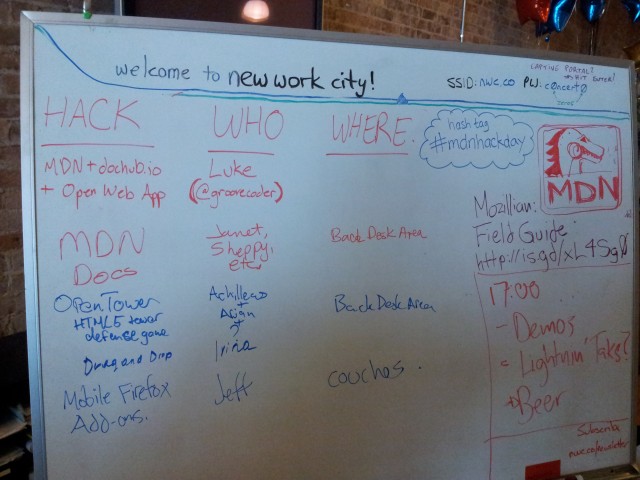 welcome to new work city!
CAPTIVE PORTAL?
HIT ENTER!
SSID: nwc.co PW: c@ncert@
HACK WHO WHERE.
hashtag
#mdnhackday
MDN
MDN + dochub.io
+ Open Web App
Luke
(@groovecoder)
Mozillian:
Field Guide
http://is.gd/xL4Sg0
MDN
Docs
Janet,
Sheppy,
etc
Back Desk Area
OpenTower
HTML5 tower
defense game
Drag and Drop
Achilleas
+
Arjan
+
Irina
Back Desk Area
Mobile Firefox
Add-ons.
Jeff
couches.
17:00
- Demos
- Lightnin' Talks?
Beer
Subscribe
nwc.co/newsletter